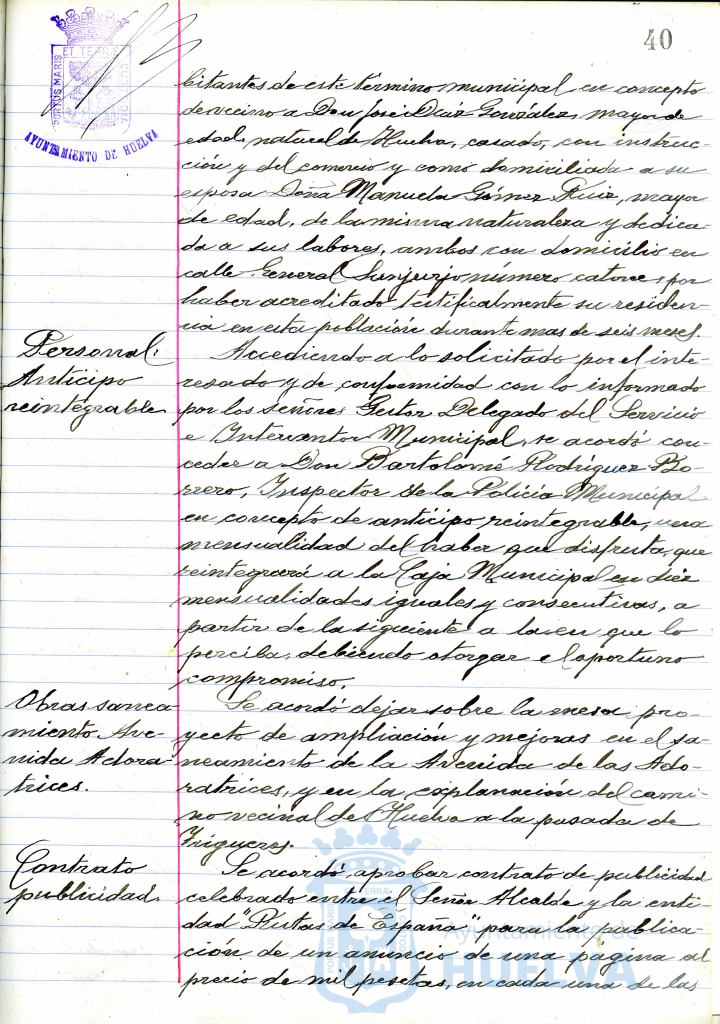 40
PORTUS MARIS ET TERRÆ CUSTODIA
AYUNTAMIENTO DE HUELVA
bitantes de este término municipal en concepto
de vecino a Don José Díaz González, mayor de
edad, natural de Huelva, casado, con instruc-
ción y del comercio y como domiciliada a su
esposa Doña Manuela Gómez Ruiz, mayor
de edad, de la misma naturaleza y dedica-
da a sus labores, ambos con domicilio en
calle General Sanjurjo número catorce, por
haber acreditado testificalmente su residen-
cia en esta población durante mas de seis meses.
Personal.
Anticipo
reintegrable
Accediendo a lo solicitado por el inte-
resado y de conformidad con lo informado
por los señores Gestor Delegado del Servicio
e Interventor Municipal, se acordó con-
ceder a Don Bartolomé Rodríguez Bo-
rrero, Inspector de la Policía Municipal
en concepto de anticipo reintegrable, una
mensualidad del haber que disfruta, que
reintegrará a la Caja Municipal en diez
mensualidades iguales y consecutivas, a
partir de la siguiente a la en que lo
perciba, debiendo otorgar el oportuno
compromiso.
Obras sanea
miento Ave-
nida Adora-
trices.
Se acordó dejar sobre la mesa pro-
yecto de ampliación y mejoras en el sa-
neamiento de la Avenida de las Ado-
ratrices, y en la explanación del cami-
no vecinal de Huelva a la pasada de
Trigueros.
Contrato
publicidad.
Se acordó, aprobar contrato de publicidad
celebrado entre el Señor Alcalde y la enti-
dad "Rutas de España" para la publica-
ción de un anuncio de una página al
precio de mil pesetas, en cada una de las
Ayuntamiento de
HUELVA